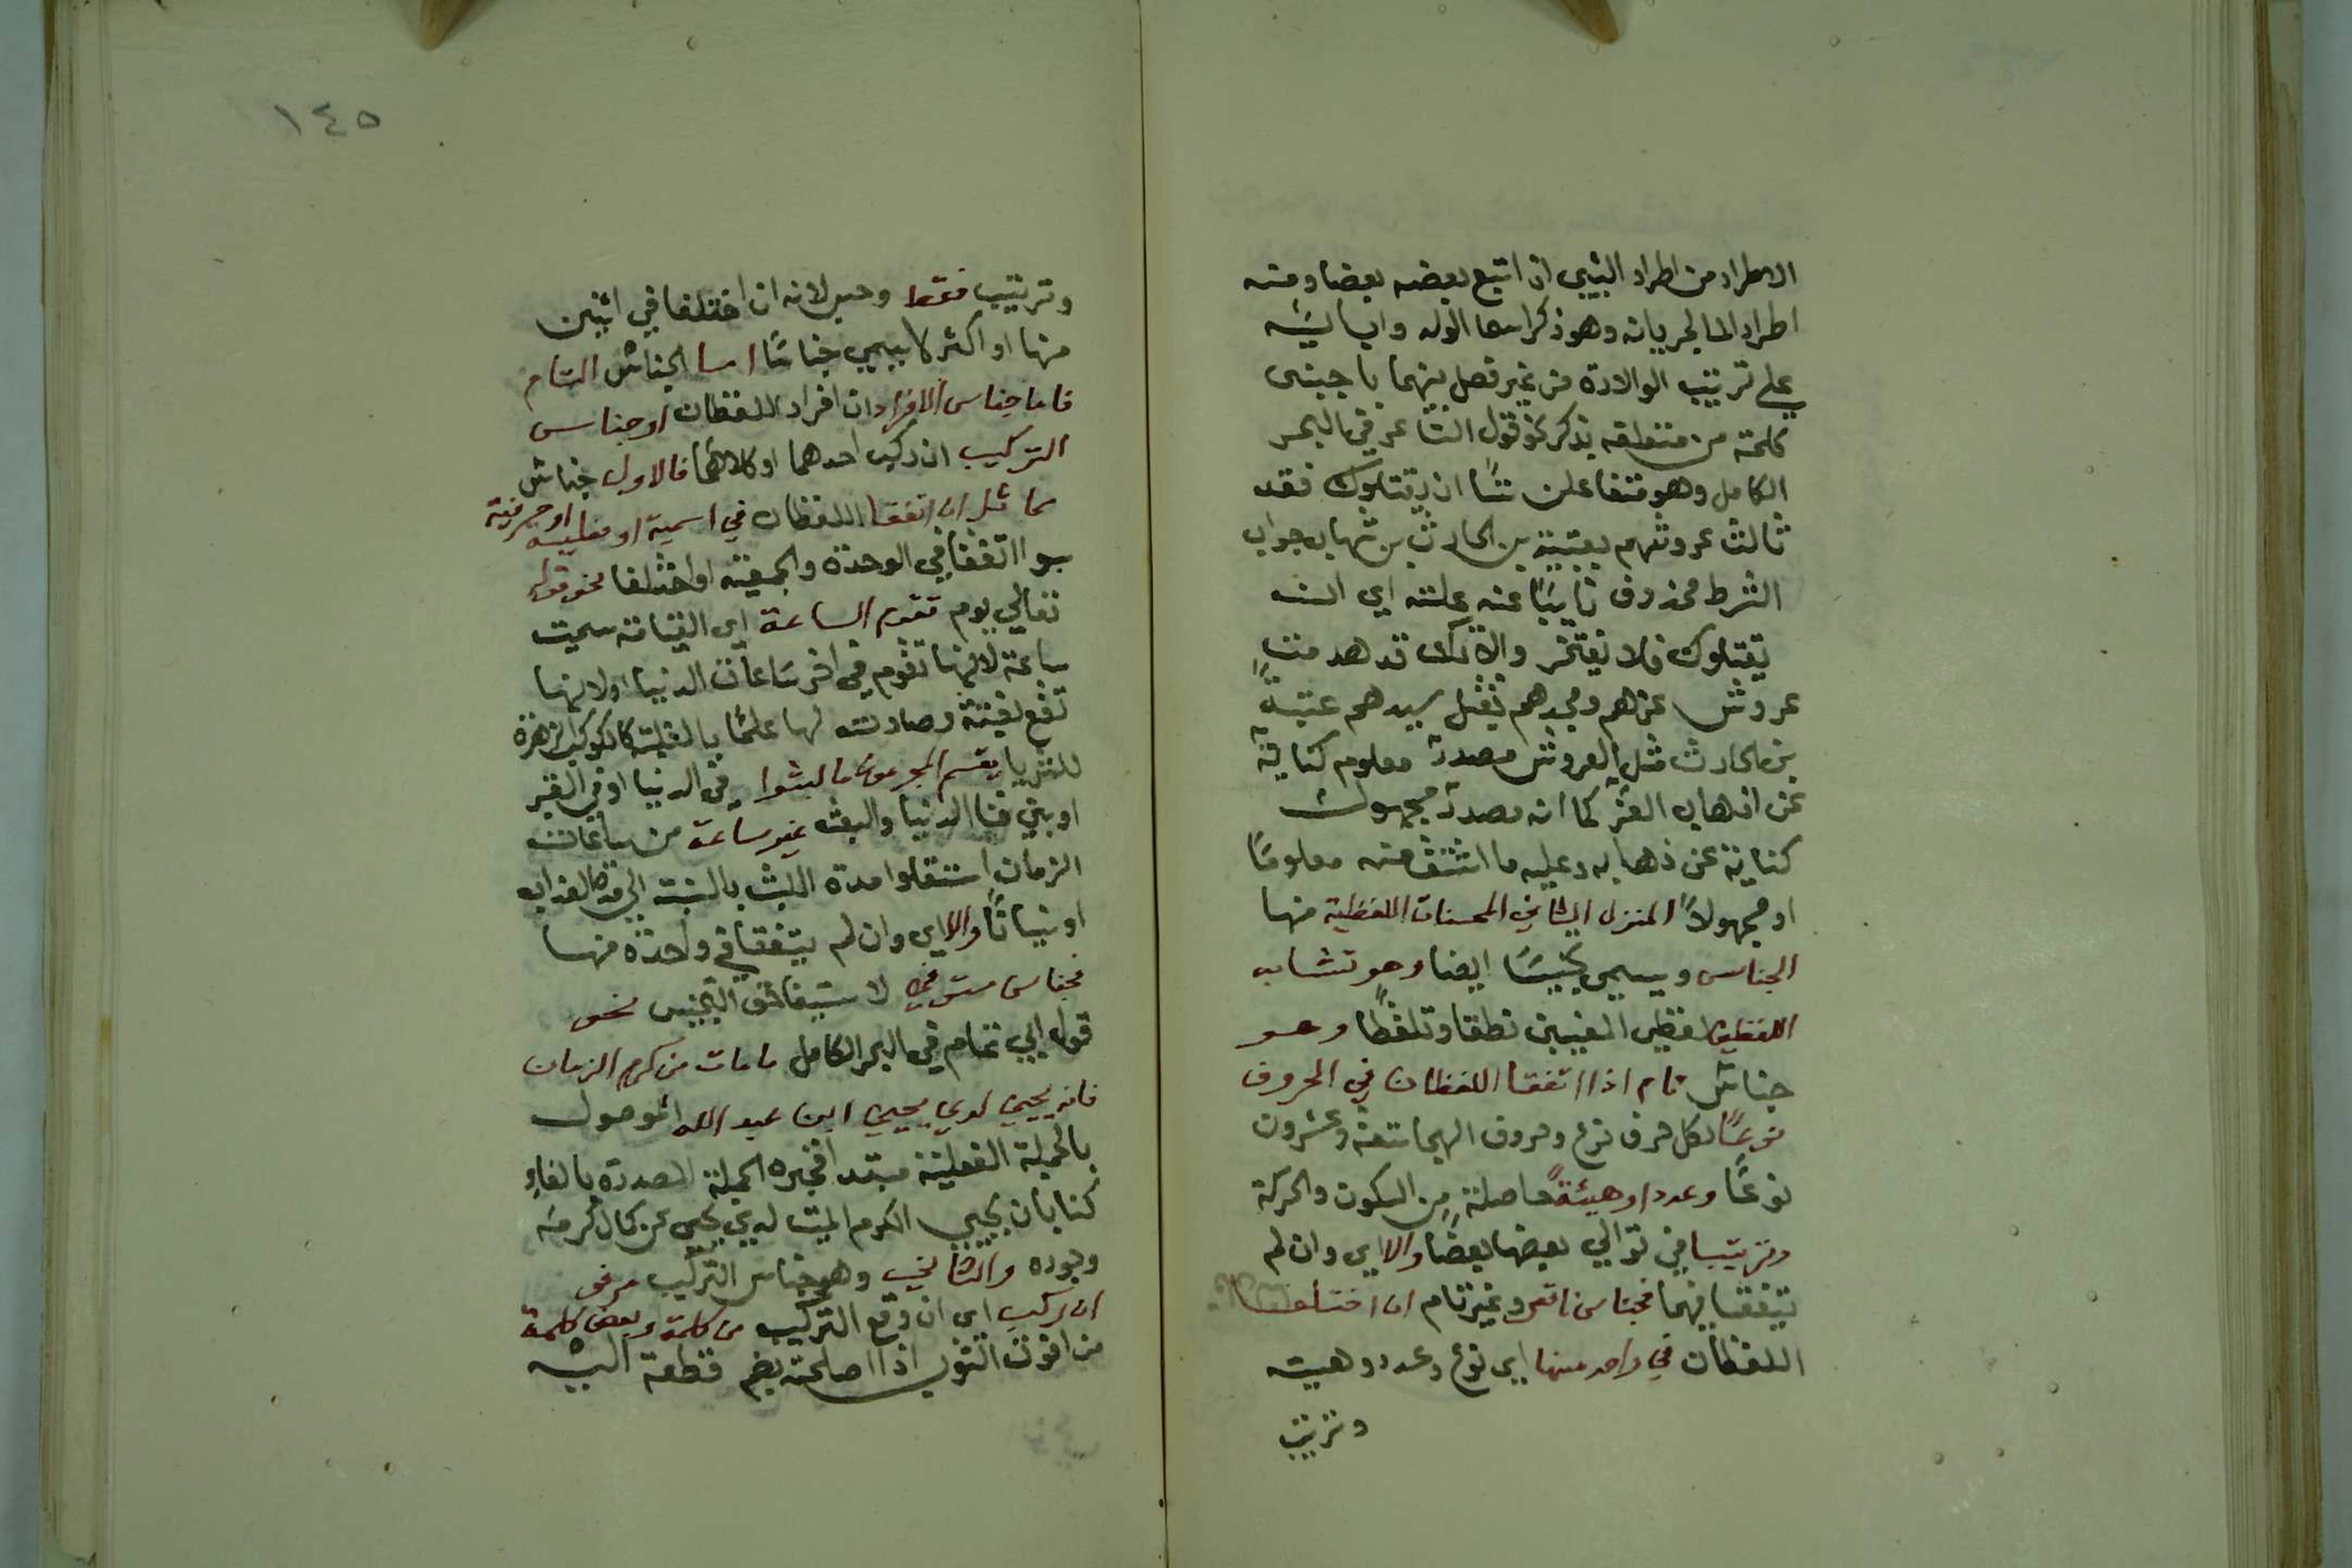 الاطراد من اطراد الشيء اذ اتبع بعضه بعضا ومنه
اطراد الما لجريانه وهو ذكر اسما الوله وابايئه
علي ترتيب الولادة من غير فصل بينهما باجبنى
كلمة من متعلقه بذكر نحو قول الشاعر في البحر
الكامل وهو متفاعلن ستًا ان يقتلوك فقد
ثالث عروشهم بعتيبة بن الحارث بن شهاب جواب
الشرط محذوف نايبًا عنه علته اي ان
يقتلوك فلا تفتخر والا نك قد هدمت
عروش عزهم ومجدهم بقتل سيدهم عتيبة
بن الحارث مثل العروش مصدر معلوم كناية
عن اذهاب العز كما انه مصدر مجهول
كناية عن ذهابه وعليه ما اشتق منه معلومًا
او مجهولاً المنزل الثاني المحسنات اللفظية منها
الجناس ويسمي تجنيسًا ايضا وهو تشابه
اللفظين لفظي المعنيين نطقا وتلفظًا وهو
جناس تام اذا اتفقا اللفظان في الحروف
نوعًا لكل حرف نوع وحروف الهجا تسعة وعشرون
نوعًا وعددا وهيئةً حاصلة من السكون والحركة
وترتيبا في توالي بعضها بعضًا والا اي وان لم
يتفقا فيهما فجناس ناقص وغير تام ان اختلفا
اللفظان في واحد منها اي نوع وعدد وهيئة
وترتيب
١٤٥
وترتيب فقط وحس لانه ان اختلفا في اثنين
منها او اكثر لا يسمي جناسًا اما الجناس التام
فاما جناس الافراد ان افراد اللفظان او جناس
التركيب ان ركب احدهما او كلاهما فالاول جناس
مماثل ان اتفقا اللفظان في اسمية او فعلية او حرفية
سوا اتفقا في الوحدة والجمعية او اختلفا نحو قوله
تعالي يوم تقوم الساعة اي القيامة سميت
ساعة لانها تقوم في اخر ساعات الدنيا او لانها
تقع بغتة وصارت لها علمًا بالغلبة كالكوكب للزهرة
للثريا يقسم المجرمون ما لبثوا في الدنيا او في القبر
او بين فنا الدنيا والبعث غير ساعة من ساعات
الزمان استقلوا مدة اللبث بالنسبة الي مدة العذاب
او نسيانًا والا اي وان لم يتفقا في واحدة منها
فجناس مستوفي لاستيفائه التجنيس نحو
قول ابي تمام في البحر الكامل ما مات من كرم الزمان
فانه يحيي لدي يحيي ابن عبد الله الموصول
بالجملة الفعلية مبتدا فخبره الجملة المصدرة بالفاء
كنا بان يحيي الكرم الميت لدي يحيي عن كمال كرمه
وجوده والثاني وهو جناس التركيب مرفو
ان ركب اي ان وقع التركيب من كلمة وبعض كلمة
من افوت الثوب اذا اصلحته بضم قطعة اليه